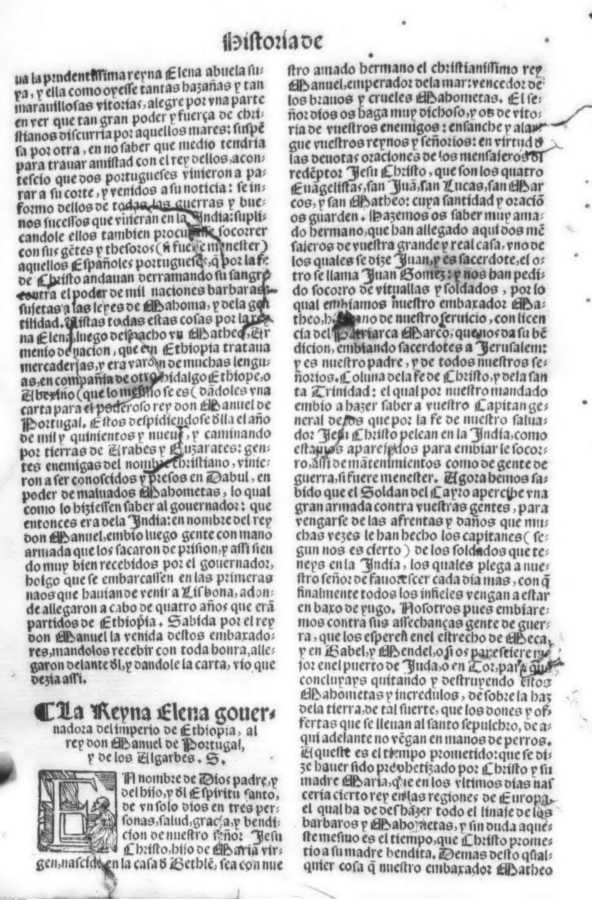 Historia de
ua la prudentissima reyna Elena abuela su-
ya, y ella como oyesse tantas hazañas y tan
marauillosas vitorias, alegre por vna parte
en ver que tan gran poder y fuerça de chri-
stianos discurria por aquellos mares: suspẽ
sa por otra, en no saber que medio tendria
para trauar amistad con el rey dellos, acon-
tescio que dos portugueses vinieron a pa-
rar a su corte, y venidos a su noticia: se in-
formo dellos de todas las guerras y bue-
nos sucessos que vinieran en la India: supli
candole ellos tambien socorrer
con sus gẽtes y thesoros (si fuesse menester)
aquellos Españoles portugueses, q̃ por la fe
de Christo andauan derramando su sangre
contra el poder de mil naciones barbaras
sujetas a las leyes de Mahoma, y de la gen
tilidad. Vistas todas estas cosas por la rey
na Elena, luego despacho vn Matheo, Ar
menio de nacion, que en Ethiopia trataua
mercaderias, y era varon de muchas lengu-
as, en compañia de otro hidalgo Ethiope, o
Abexino (que lo mesmo se es) dãdoles vna
carta para el poderoso rey don Manuel de
Portugal. Estos despidiendose đlla el año
de mil y quinientos y nueue, y caminando
por tierras de Arabes y Guzarates: gen-
tes enemigas del nombre christiano, vinie-
ron a ser conoscidos y presos en Dabul, en
poder de maluados Mahometas, lo qual
como lo hiziessen saber al gouernador: que
entonces era dela India: en nombre del rey
don Manuel, embio luego gente con mano
armada que los sacaron de prision, y assi sien
do muy bien recebidos por el gouernador,
holgo que se embarcassen en las primeras
naos que hauian de venir a Lisbona, adon-
de allegaron a cabo de quatro años que erã
partidos de Ethiopia. Sabida por el rey
don Manuel la venida destos embaxado-
res, mandolos recebir con toda honra, alle-
garon delante đl, y dandole la carta, vio que
dezia assi.
¶La Reyna Elena gouer-
nadora del imperio de Ethiopia, al
rey don Manuel de Portugal,
y de los Algarbes. S.
N nombre de Dios padre, y
del hijo, y đl Espiritu santo,
de vn solo dios en tres per-
sonas, salud, gracia, y bendi-
cion de nuestro señor Jesu
Christo, hijo de Maria vir-
gen, nascido en la casa đ Bethlẽ, sea con nue
stro amado hermano el christianissimo rey
Manuel, emperador dela mar: vencedor de
los brauos y crueles Mahometas. El se-
ñor dios os haga muy dichoso, y os de vito-
ria de vuestros enemigos: ensanche y alar
gue vuestros reynos y señorios: en virtud đ
las deuotas oraciones de los mensajeros đl
redẽptor Jesu Christo, que son los quatro
Euãgelistas, san Juã, san Lucas, san Mar
cos, y san Matheo: cuya santidad y oraciõ
os guarden. Hazemos os saber muy ama-
do hermano, que han allegado aqui dos mẽ
sajeros de vuestra grande y real casa, vno de
los quales se dize Juan, y es sacerdote, el o-
tro se llama Juan Gomez: y nos han pedi-
do socorro de vituallas y soldados, por lo
qual embiamos nuestro embaxador Ma-
theo, hermano de nuestro seruicio, con licen
cia del Patriarca Marco, que nos da su bẽ
dicion, embiando sacerdotes a Jerusalem:
y es nuestro padre, y de todos nuestros se-
ñorios, Coluna dela fe de Christo, y dela san
ta Trinidad: el qual por nuestro mandado
embio a hazer saber a vuestro Capitan ge-
neral delos que por la fe de nuestro salua-
dor Jesu Christo pelean en la India, como
estamos aparejados para embiarle socor-
ro, assi de mãtenimientos como de gente de
guerra, si fuere menester. Agora hemos sa-
bido que el Soldan del Cayro apercibe vna
gran armada contra vuestras gentes, para
vengarse de las afrentas y daños que mu-
chas vezes le han hecho los capitanes (se-
gun nos es cierto) de los soldados que te-
neys en la India, los quales plega a nue-
stro señor de fauorescer cada dia mas, con q̃
finalmente todos los infieles vengan a estar
en baxo de yugo. Nosotros pues embiare-
mos contra sus assechanças gente de guer-
ra, que los esperẽ en el estrecho de Meca,
y en Babel, y Mendel, o si os paresciere me
jor en el puerto de Juda, o en Tor, para que
concluyays quitando y destruyendo estos
Mahometas y incredulos, de sobre la haz
dela tierra, de tal suerte, que los dones y of-
fertas que se lleuan al santo sepulchro, de a-
qui adelante no vẽgan en manos de perros.
Aqueste es el tiempo prometido: que se di-
ze hauer sido prophetizado por Christo y su
madre Maria, que en los vltimos dias nas
ceria cierto rey en las regiones de Europa,
el qual ha de deshazer todo el linaje de los
barbaros y Mahometas, y sin duda aque-
ste mesmo es el tiempo, que Christo prome-
tio a su madre bendita. Demas desto qual-
quier cosa q̃ nuestro embaxador Matheo